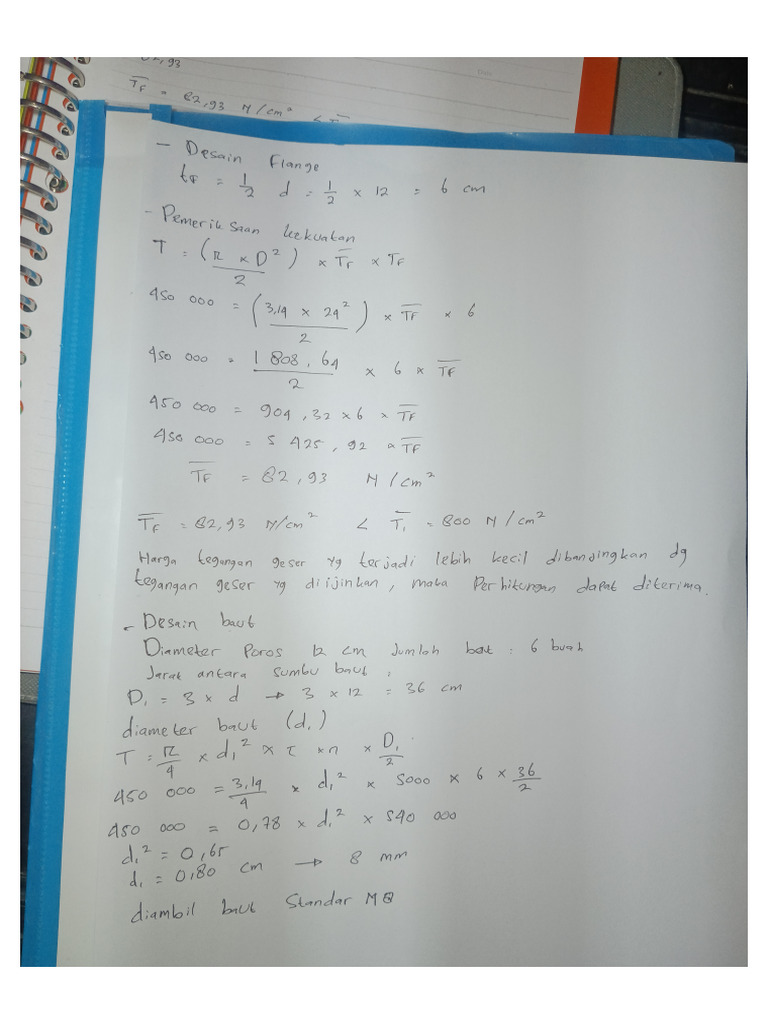 82,93
T̅F = 82,93 N/cm² < T̅
- Desain Flange
tF = 1/2 d = 1/2 × 12 = 6 cm
- Pemeriksaan kekuatan
T = (π × D² / 2) × T̅F × TF
450 000 = (3,14 × 24² / 2) × T̅F × 6
450 000 = 1 808,64 / 2 × 6 × T̅F
450 000 = 904,32 × 6 × T̅F
450 000 = 5 425,92 × T̅F
T̅F = 82,93 N/cm²
T̅F = 82,93 N/cm² < T̅1 = 800 N/cm²
Harga tegangan geser yg terjadi lebih kecil dibandingkan dg
tegangan geser yg diijinkan, maka Perhitungan dapat diterima.
- Desain baut
Diameter Poros 12 cm Jumlah baut : 6 buah
Jarak antara sumbu baut :
D1 = 3 × d → 3 × 12 = 36 cm
diameter baut (d1)
T = π/4 × d1² × τ × n × D1/2
450 000 = 3,14/4 × d1² × 5000 × 6 × 36/2
450 000 = 0,78 × d1² × 540 000
d1² = 0,65
d1 = 0,80 cm → 8 mm
diambil baut Standar M8